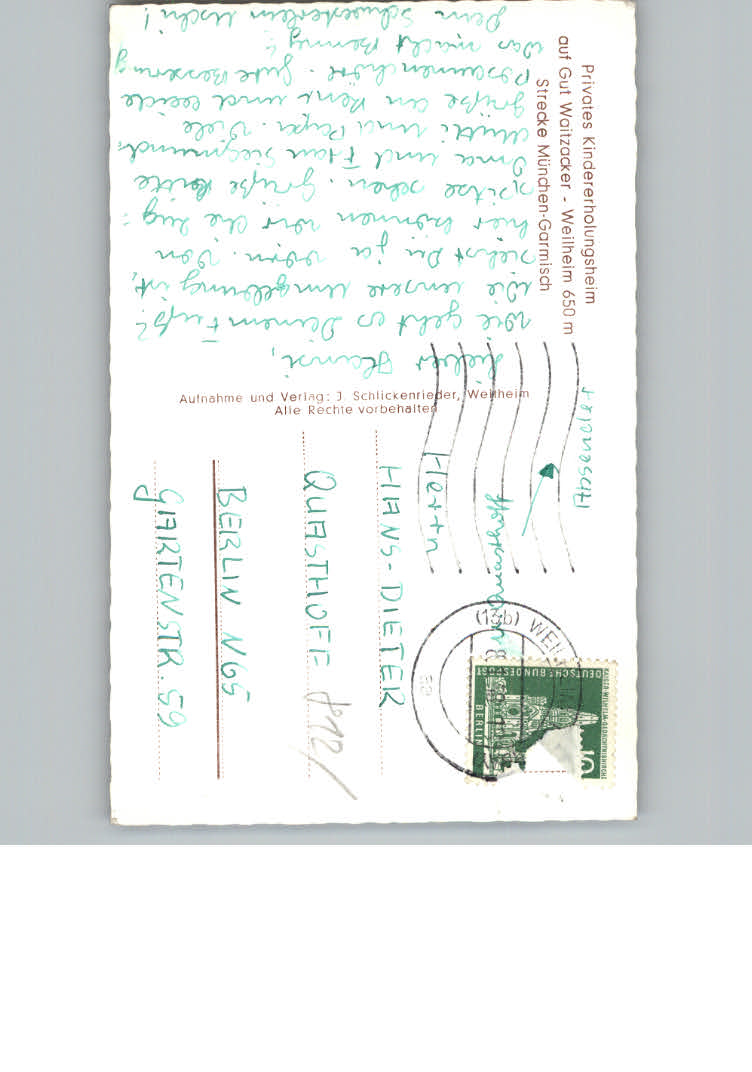 Privates Kindererholungsheim
auf Gut Waitzacker - Weilheim 650 m
Strecke München-Garmisch
Lieber Hansi,
wie geht es Deinem Fuß?
Wie unsere Umgebung ist,
siehst Du ja vorn. Von
hier können wir die Zug-
spitze sehen. Grüße bitte
Oma und Frau Siegmund,
Mutti und Papi. Viele
Grüße an und beide
Posaunenchöre. Gute Besserung
Was macht Benny?
Dein Schwesterlein Uschi!
Aufnahme und Verlag: J. Schlickenrieder, Weilheim
Alle Rechte vorbehalten
Absender
Herrn
HANS-DIETER
QUASTHOFF
BERLIN N65
GARTENSTR. 59
(13b) WEILHEIM
59
KAISER-WILHELM-GEDÄCHTNISKIRCHE
DEUTSCHE BUNDESPOST
BERLIN
10